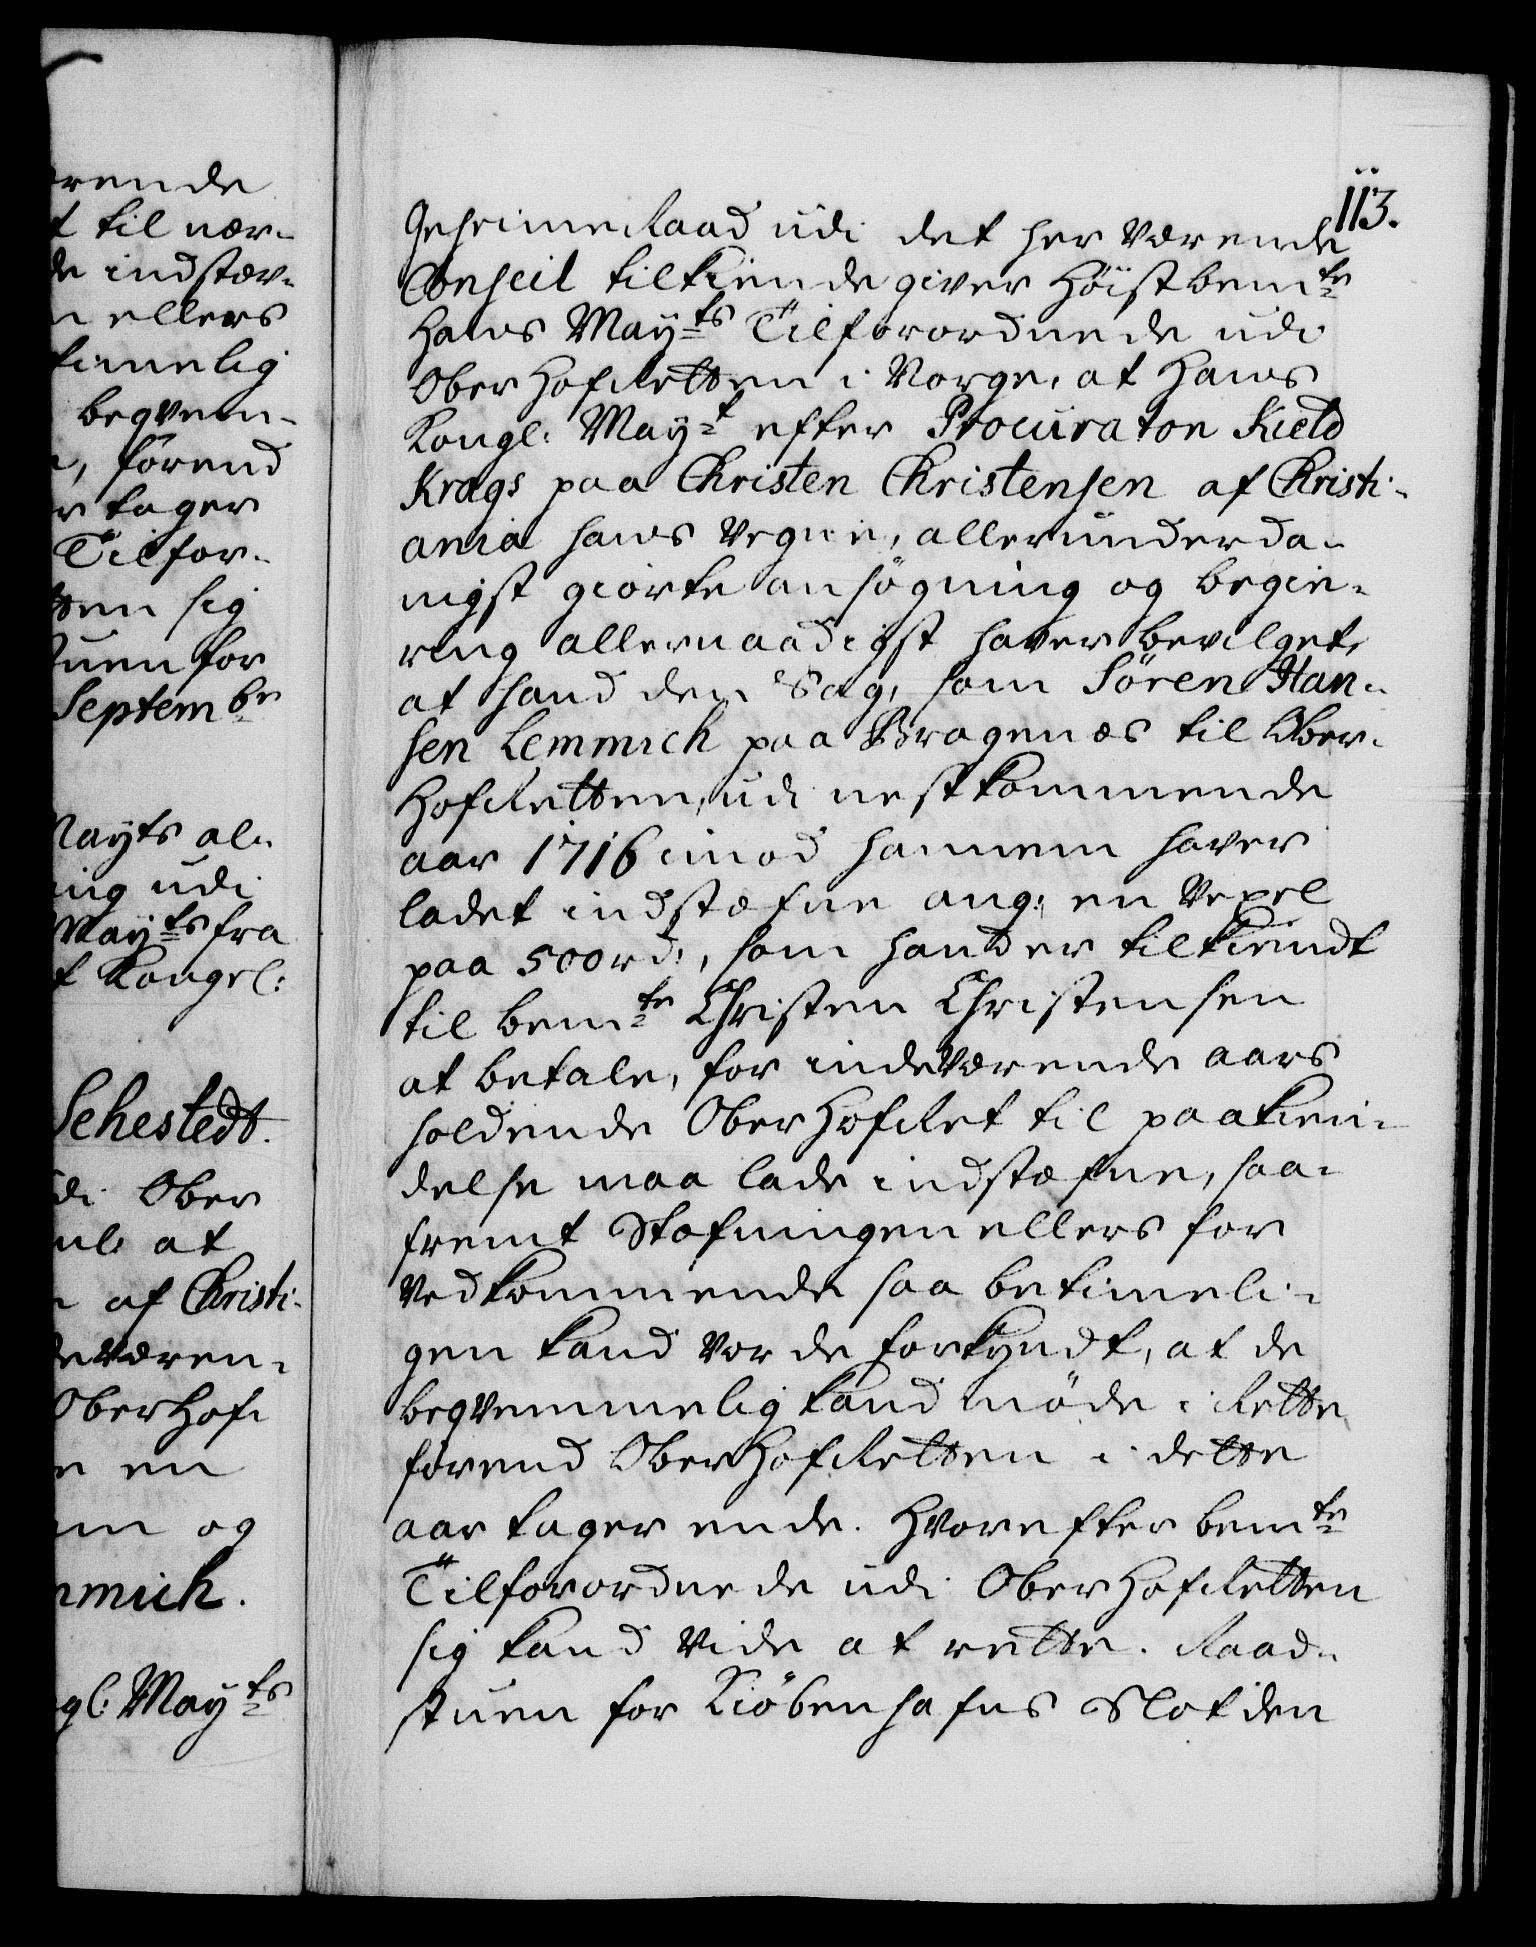 rende
t til nær-
de indstæv-
n ellers
timelig
begvem-
, förend
r tager
Tilfor-
tten sig
tuen for
Septembr

Mayts al-
ing udi
Mayts fra
t Kongel:

Sehestedt.
di Ober
nl: at
af Christi-
deværen-
Oberhof-
en
m og
mmich.

gl: Mayts

113.
Geheime Raad udi det her værende
Conseil tilkiende giver Höistbemte
Hans Mayts Tilforordnede udi
Ober Hof Retten i Norge, at Hans
Kongl: Mayt efter Procurator Kield
Krags paa Christen Christensen af Christi-
ania hans Vegne, allerunderda-
nigst giorte ansögning og begie-
ring allernaadigst haver bevilget,
at hand den Sag, som Sören Han-
sen Lemmich paa Bragenæs til Ober-
Hof Retten, udi nestkommende
aar 1716 imod hannem haver
ladet indstæfne ang: en Vexel
paa 500 rd:, som hand er tilkiendt
til bemte Christen Christensen
at betale, for indeværende aars
holdende Ober Hof Ret til paakien-
delse maa lade indstæfne, saa-
fremt Stæfningen ellers for
Vedkommende saa betimeli-
gen kand vorde forkyndt, at de
begvemmelig kand möde i Rette,
förend Ober Hof Retten i dette
aar tager ende. Hvorefter bemte
Tilforordnede udi Ober Hof Retten
sig kand vide at rette. Raad-
stuen for Kiöbenhafns Slot den